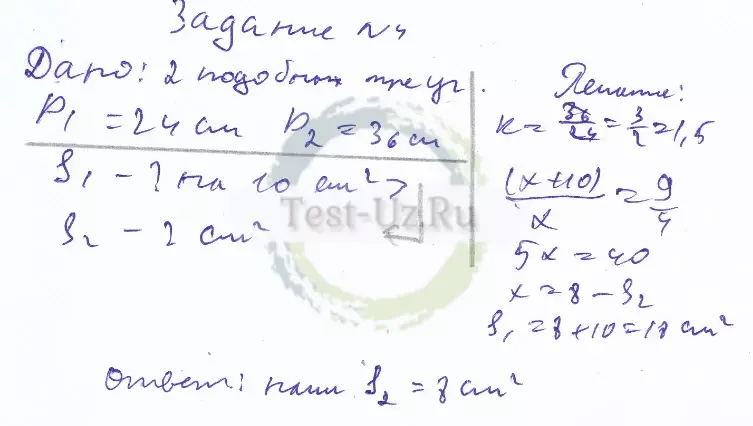 Задание N4
Дано: 2 подобных треуг.
P₁ = 24 см P₂ = 36 см
S₁ - ? на 10 см² >
S₂ - ? см²
Решение:
k = 36/24 = 3/2 = 1,5
(x+10)/x = 9/4
5x = 40
x = 8 - S₂
S₁ = 8 + 10 = 18 см²
Ответ: наим S₂ = 8 см²
Test-Uz.Ru